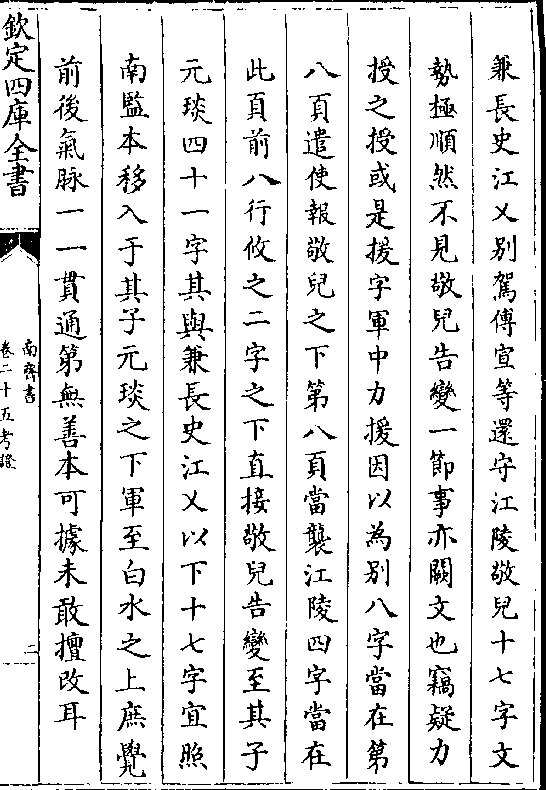 兼長史江乂別駕傅宣等還守江陵敬兒十七字文
勢極順然不見敬兒告變一節事亦闕文也竊疑力
授之授或是援字軍中力援因以為別八字當在第
八頁遣使報敬兒之下第八頁當襲江陵四字當在
此頁前八行攸之二字之下直接敬兒告變至其子
元琰四十一字其與兼長史江乂以下十七字宜照
南監本移入于其子元琰之下軍至白水之上庶覺
前後氣脉一一貫通第無善本可據未敢擅改耳
欽定四庫全書
南齊書
卷二十五考證
二